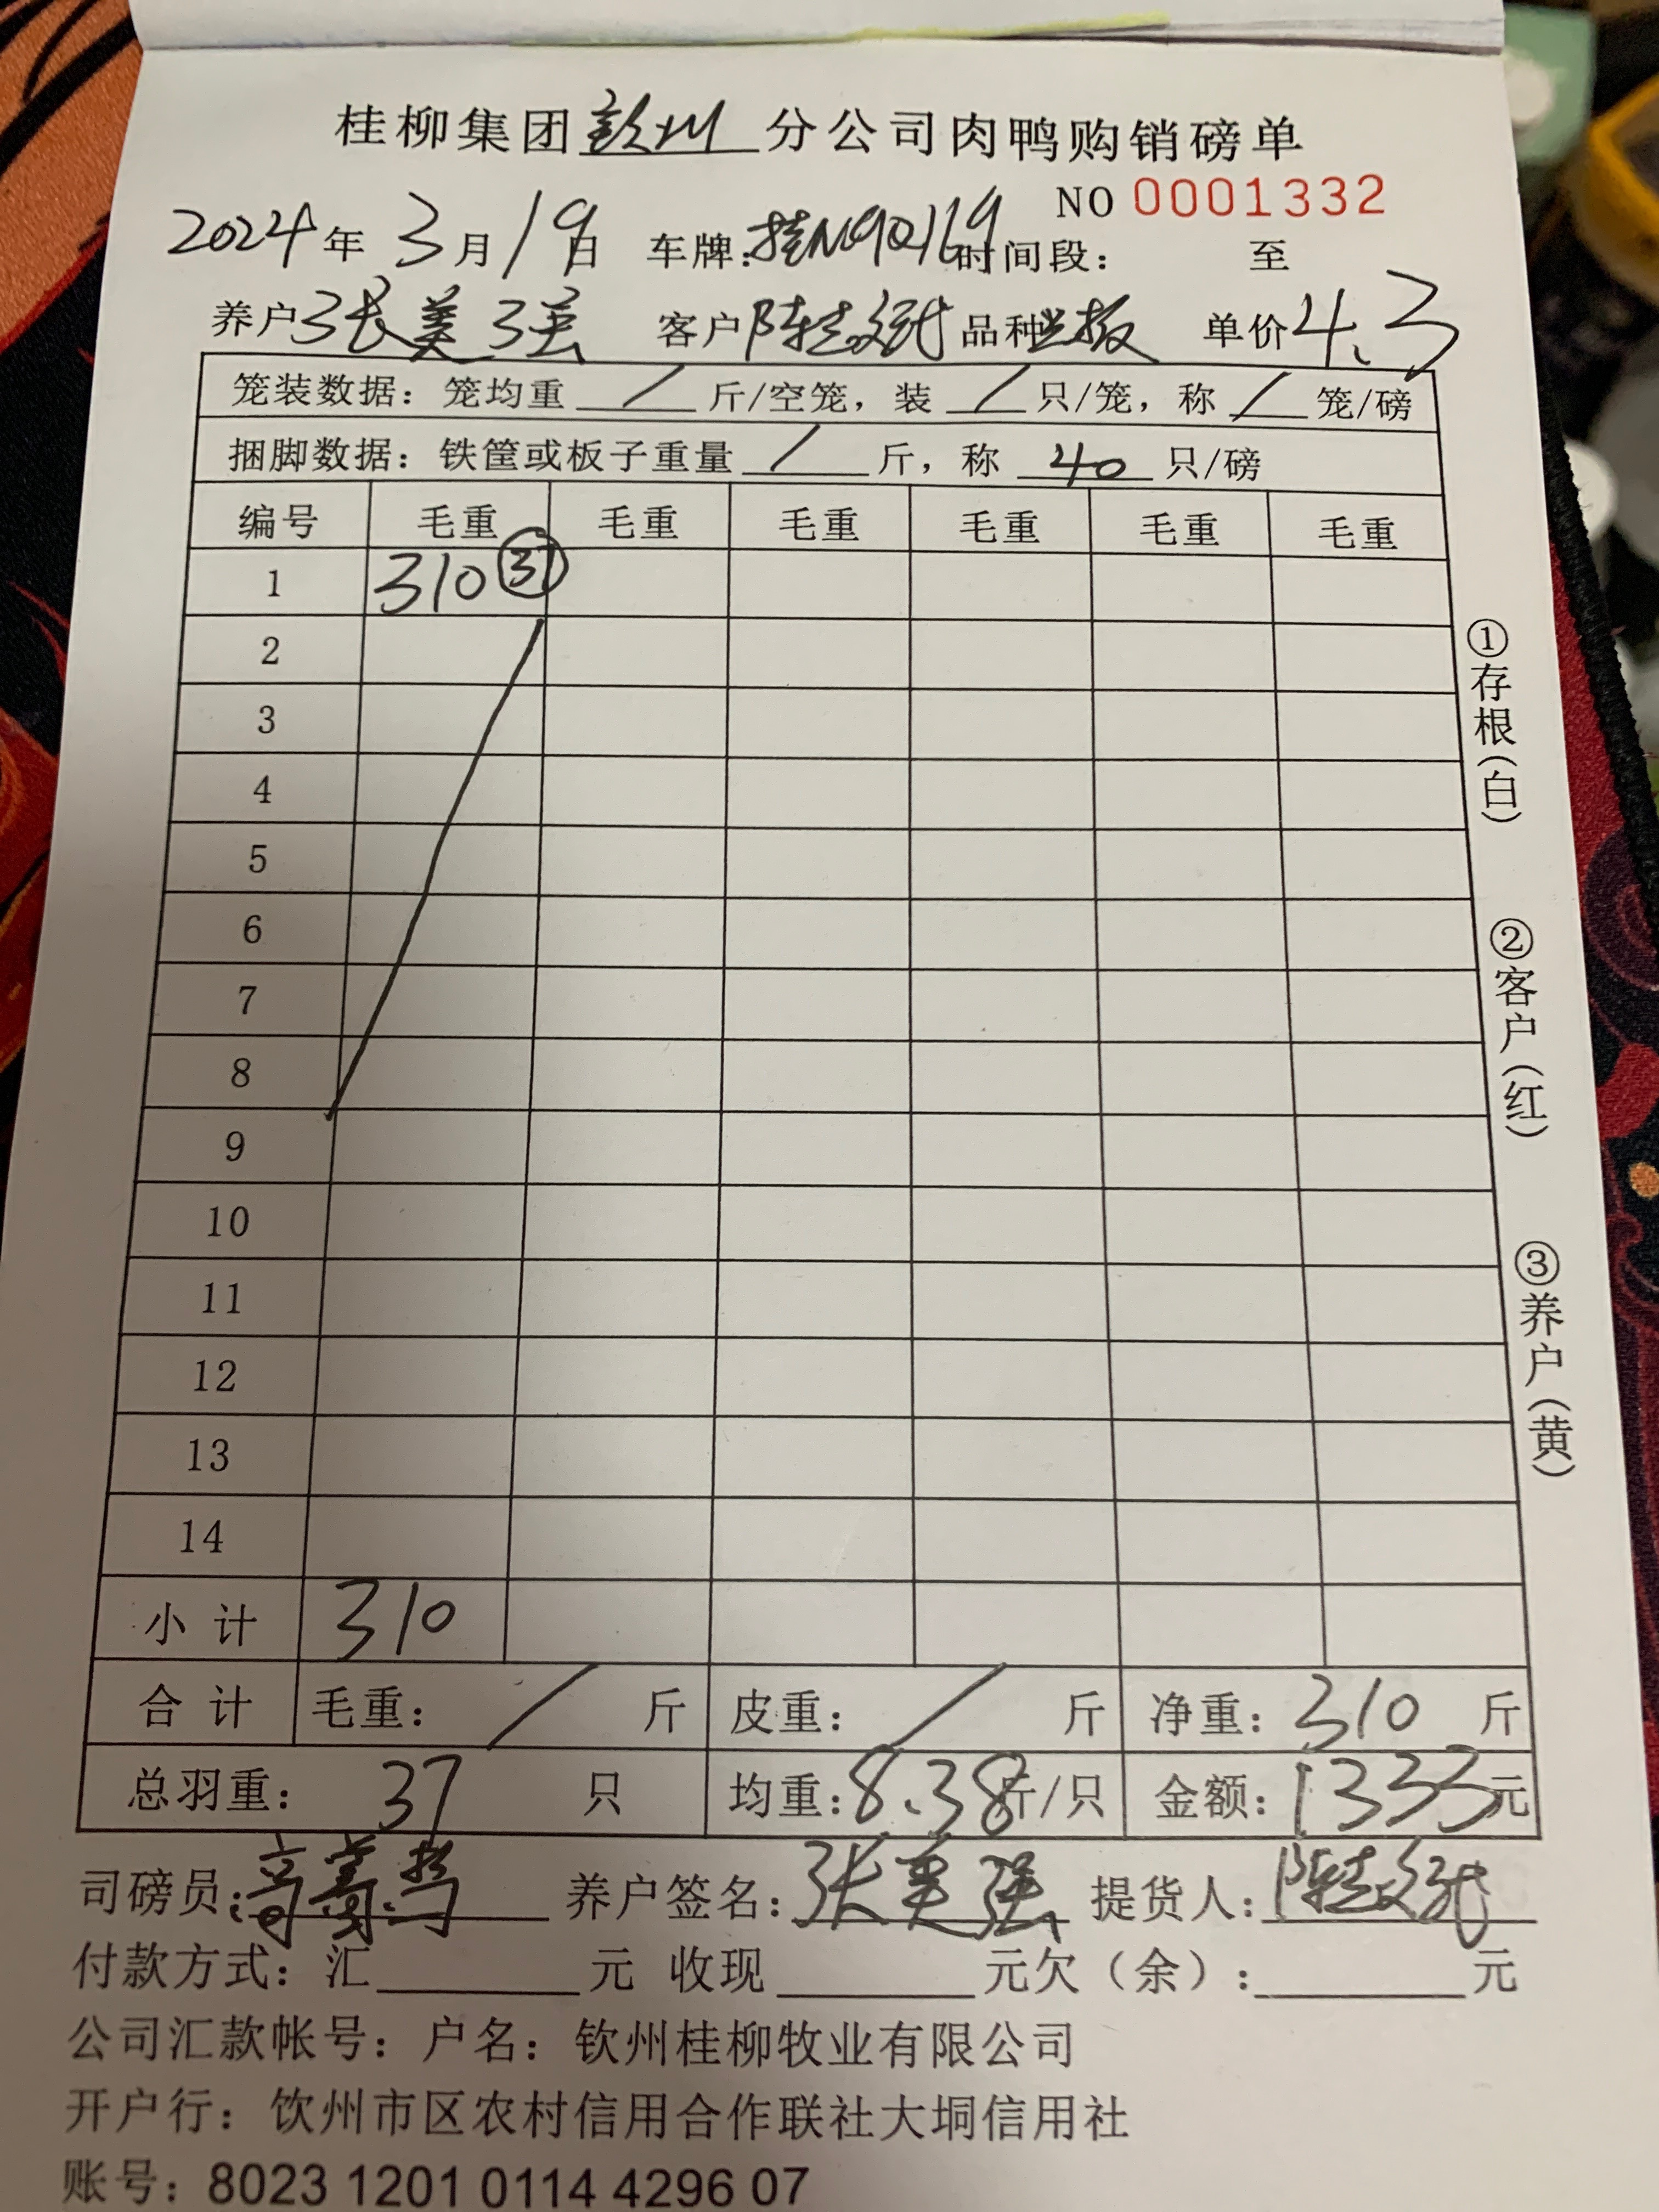 桂柳集团钦州分公司肉鸭购销磅单
NO 0001332
2024年 3月 19日 车牌：桂N90269 时间段： 至
养户 张美强 客户 陈 品种 单价 4.3
笼装数据：笼均重 / 斤/空笼，装 / 只/笼，称 / 笼/磅
捆脚数据：铁筐或板子重量 / 斤，称 40 只/磅
编号 毛重 毛重 毛重 毛重 毛重 毛重
1 310 37
2
3
4
5
6
7
8
9
10
11
12
13
14
小计 310
合计 毛重： / 斤 皮重： / 斤 净重：310 斤
总羽重： 37 只 均重：8.38斤/只 金额：1333元
司磅员： 养户签名：张美强 提货人：陈
付款方式：汇 元 收现 元欠（余）： 元
公司汇款帐号：户名：钦州桂柳牧业有限公司
开户行：饮州市区农村信用合作联社大垌信用社
账号：8023 1201 0114 4296 07
①存根（白）
②客户（红）
③养户（黄）